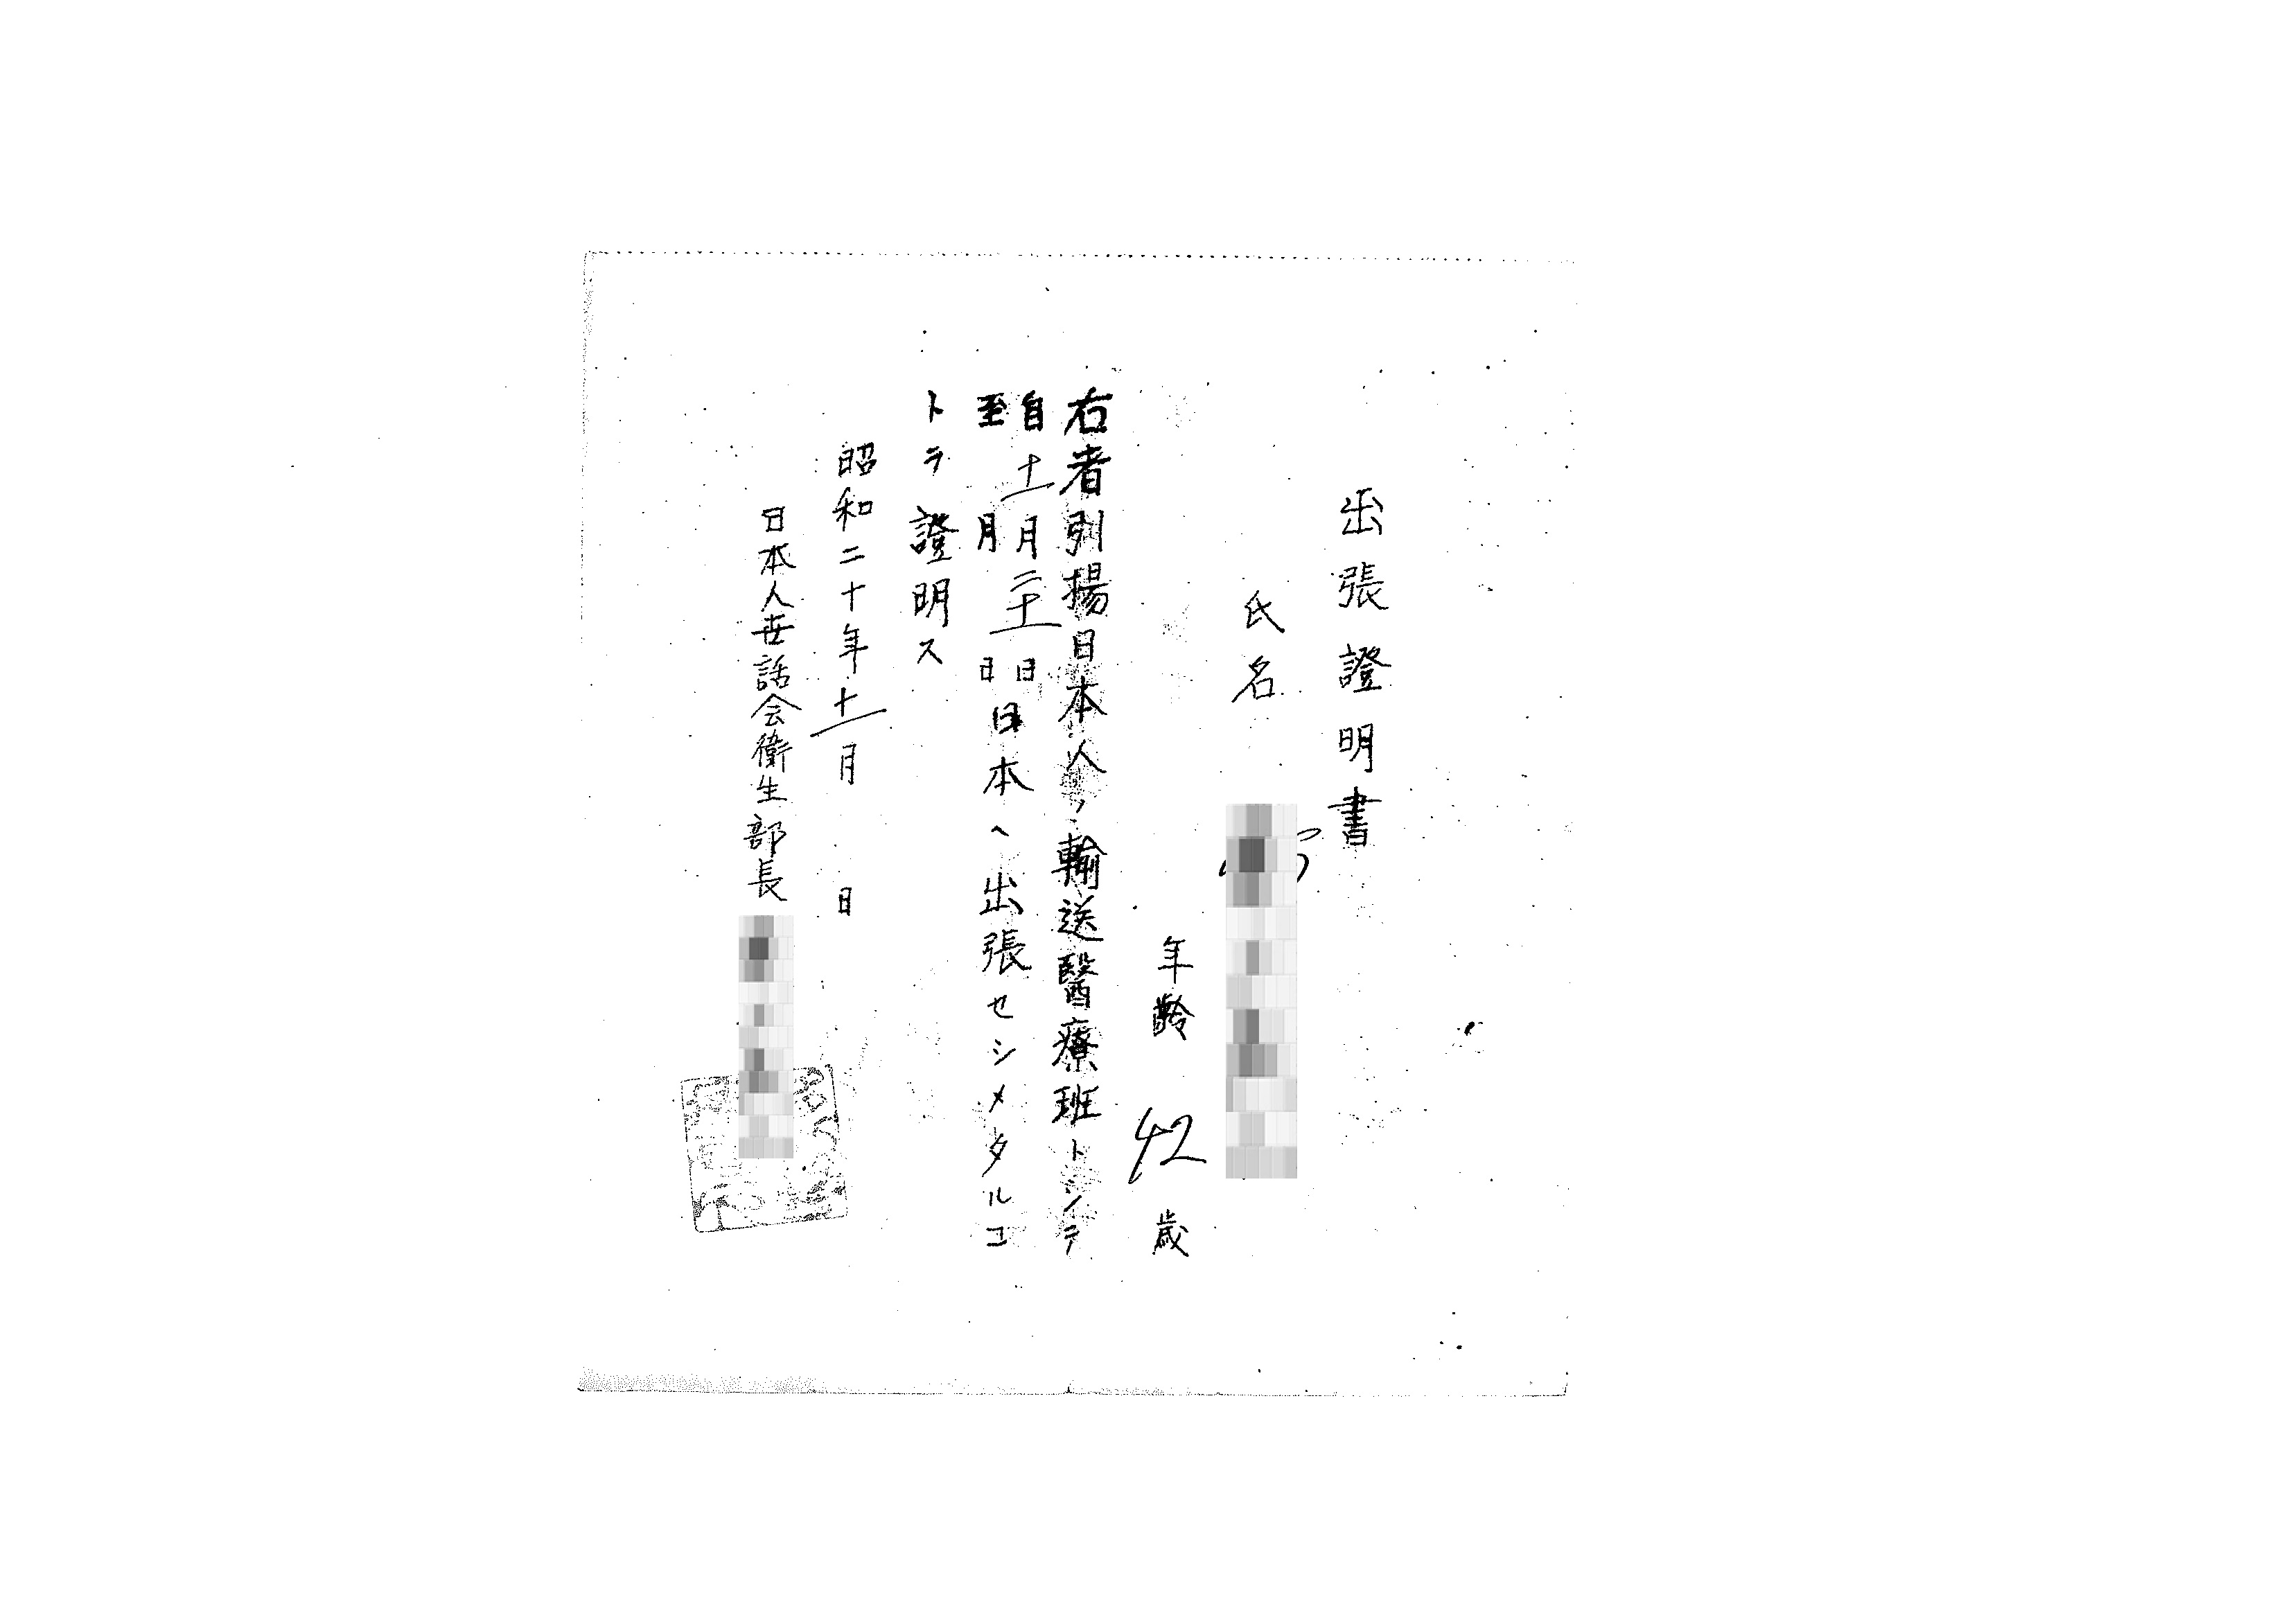 出張證明書
氏名
年齢 42 歳
右者引揚日本人ノ輸送醫療班トシテ
自十一月二十一日
至 月 日
日本ヘ出張セシメタルコ
トヲ證明ス
昭和二十年十一月 日
日本人世話会衛生部長